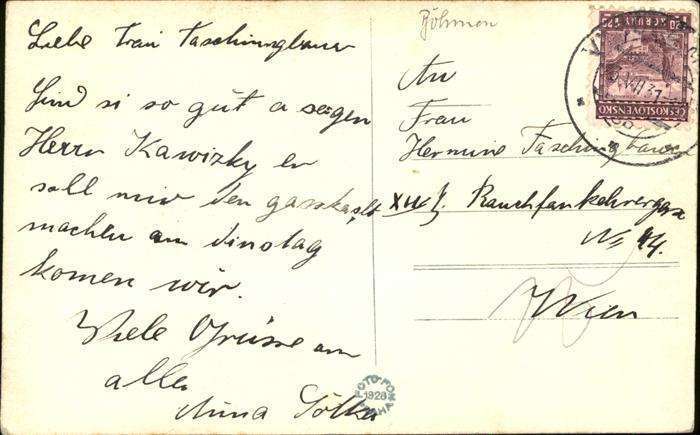 Liebe Frau Taschingbauer
Sind si so gut a sagen
Herrn Kawizky er
soll mir den gasskastl
machen am dinstag
komen wir.
Viele Grüsse an
alle
Anna
Böhmen
An
Frau
Hermine Faschingbauer
XIII/1. Rauchfankehrergasse
No 44.
Wien
20 KORUNY 1.20
ČESKOSLOVENSKO
VII 31
FOTO FON
1928
PRAHA